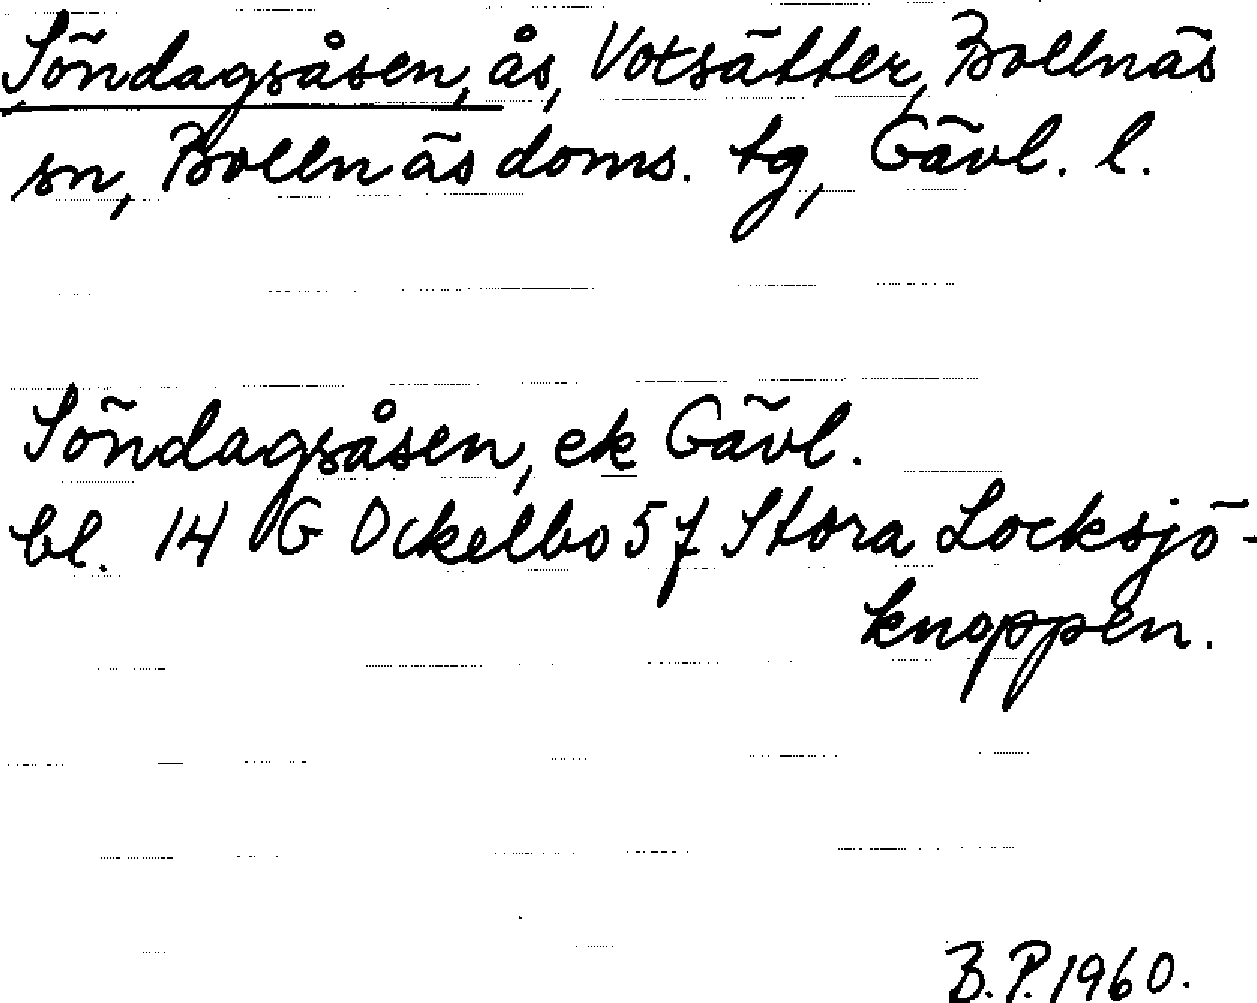 Söndagsåsen, ås, Votsätter, Bollnäs
sn, Bollnäs doms. tg, Gävl. l.
Söndagsåsen, ek Gävl.
bl. 14 G Ockelbo 57 Stora Locksjö-
knoppen.
B.P. 1960.